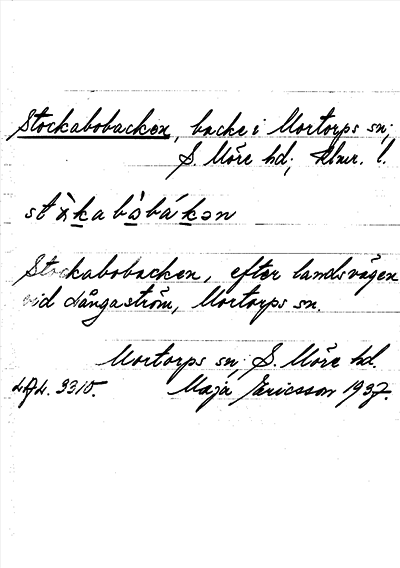 Stockabobacken, backe i Mortorps sn;
S. Möre hd; Klmr. l.
Stockabobacken, efter landsvägen
vid Långaström, Mortorps sn.
Mortorps sn; S. Möre hd.
Maja Ericsson 1937.